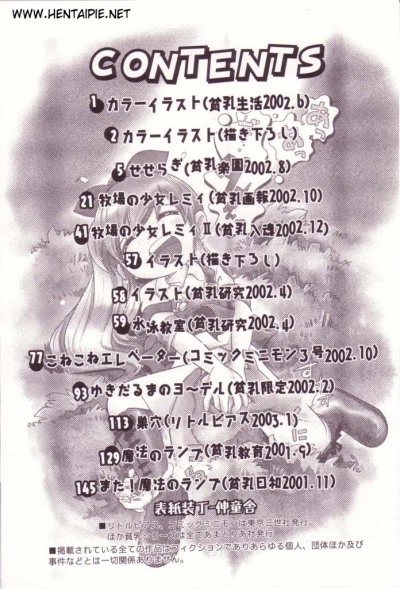 WWW.HENTAIPIE.NET
CONTENTS
1 カラーイラスト(貧乳生活2002.6)
2 カラーイラスト(描き下ろし)
5 せせらぎ(貧乳楽園2002.8)
21 牧場の少女レミィ(貧乳画報2002.10)
41 牧場の少女レミィⅡ(貧乳入魂2002.12)
57 イラスト(描き下ろし)
58 イラスト(貧乳研究2002.4)
59 水泳教室(貧乳研究2002.4)
77 こねこねエレベーター(コミックミニモン3号2002.10)
93 ゆきだるまのヨ〜デル(貧乳限定2002.2)
113 巣穴(リトルピアス2003.1)
129 魔法のランプ(貧乳教育2001.9)
145 また!魔法のランプ(貧乳日和2001.11)
表紙装丁-伸童舎
■リトルピアス、コミックミニモンは東京三世社発行
ほか貧乳シリーズは全てあまとりあ社発行
■掲載されている全ての作品はフィクションでありあらゆる個人、団体ほか及び
事件などとは一切関係ありません。